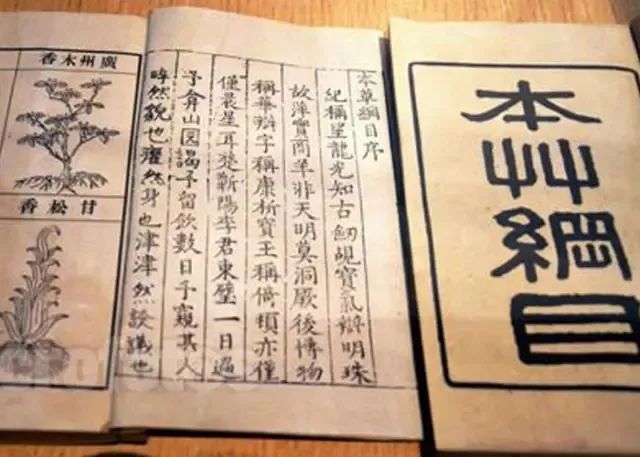 本艸綱目
本草綱目序
紀稱望龍光知古劒覘寶氣辯明珠
故萍實商羊非天明莫洞厥後博物
稱華辯字稱康析寶王稱倚頓亦僅
僅晨星耳楚蘄陽李君東璧一日過
予弇山園謁予留飲數日予窺其人
睟然貌也癯然身也津津然談議也
廣州木香
甘松香